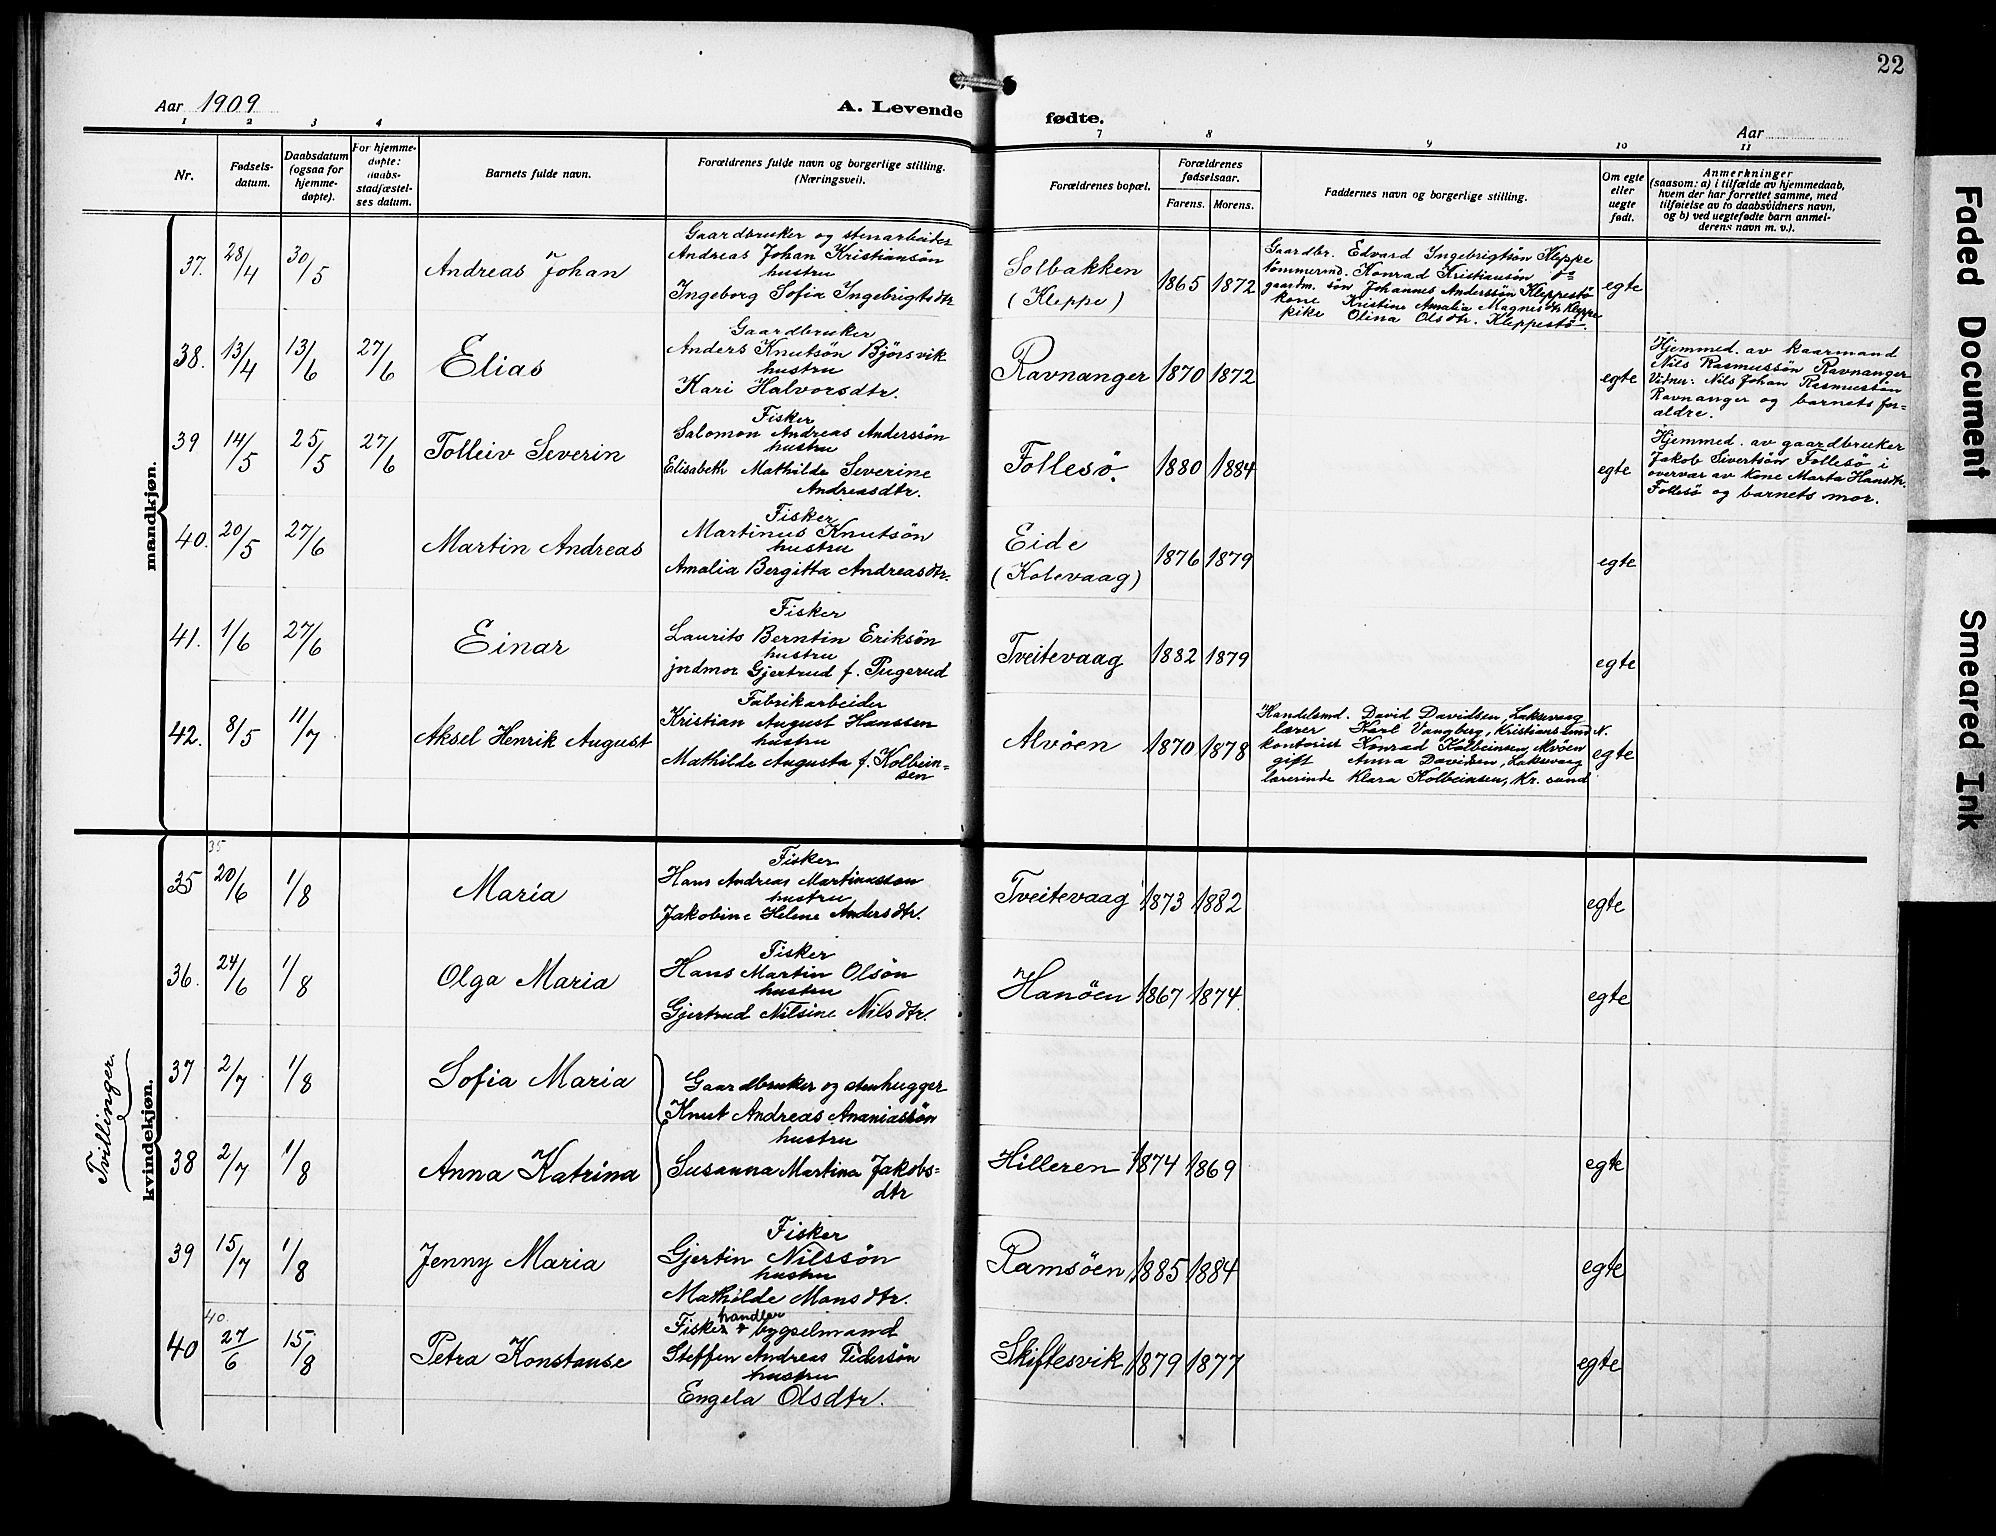 22
Aar 1909
A. Levende
fødte.
Aar
1 2 3 4 7 8 9 10 11
Nr.
Fødsels-
datum.
Daabsdatum
(ogsaa for
hjemme-
døpte).
For hjemme-
døpte:
daabs-
stadfæstel-
ses datum.
Barnets fulde navn.
Forældrenes fulde navn og borgerlige stilling.
(Næringsvei).
Forældrenes bopæl.
Forældrenes
fødselsaar.
Farens. Morens.
Faddernes navn og borgerlige stilling.
Om egte
eller
uegte
født.
Anmerkninger
(saasom: a) i tilfælde av hjemmedaab,
hvem der har forrettet samme, med
tilføielse av to daabsvidners navn,
og b) ved uegtefødte barn anmel-
derens navn m. v.).
mandkjøn.
37. 28/4 30/5 Andreas Johan
Gaardbruker og stenarbeider
Andreas Johan Kristiansön
hustru
Ingeborg Sofia Ingebrigtsdtr
Solbakken
(Kleppe)
1865 1872
Gaardbr. Edvard Ingebrigtsön Kleppe
tömmermd. Konrad Kristiansön do
gaardm. sön Johannes Anderssön Kleppestö
kone Kristine Amalia Magnesdtr. Kleppe
pike Olina Olsdtr. Kleppestö
egte
38. 13/4 13/6 27/6 Elias
Gaardbruker
Anders Knutsön Björsvik
hustru
Kari Halvorsdtr.
Ravnanger 1870 1872
egte
Hjemmed. av kaarmand
Nils Rasmussön Ravnanger
Vidner: Nils Johan Rasmussön
Ravnanger og barnets for-
ældre.
39 14/5 25/5 27/6 Tolleiv Severin
Fisker
Salomon Andreas Anderssön
hustru
Elisabeth Mathilde Severine
Andreasdtr.
Follesö. 1880 1884
egte
Hjemmed. av gaardbruker
Jakob Sivertsön Follesö i
overvær av kone Marta Hansdtr.
Follesö og barnets mor.
40. 20/5 27/6 Martin Andreas
Fisker
Martinus Knutsön
hustru
Amalia Bergitta Andreasdtr.
Eide
(Kolevaag)
1876 1879
egte
41. 1/6 27/6 Einar
Fisker
Laurits Berntin Eriksön
hustru
jordmor Gjertrud f. Pugerud
Tveitevaag 1882 1879
egte
42. 8/5 11/7 Aksel Henrik August
Fabrikarbeider
Kristian August Hanssen
hustru
Mathilde Augusta f. Kolbein-
sen
Alvöen 1870 1878
Handelsmd. David Davidsen, Laksevaag
lærer Karl Vangberg, Kristianssund N.
kontorist Konrad Kolbeinsen, Alvöen
gift Anna Davidsen, Laksevaag
lærerinde Klara Kolbeinsen, Kr. sund
egte
kvindekjøn.
35
35 20/6 1/8 Maria
Fisker
Hans Andreas Martinussøn
hustru
Jakobine Helene Andersdtr.
Tveitevaag 1873 1882
egte
36. 24/6 1/8 Olga Maria
Fisker
Hans Martin Olsön
hustru
Gjertrud Nilsine Nilsdtr.
Hanöen 1867 1874.
egte
Tvillinger.
37 2/7 1/8 Sofia Maria
38 2/7 1/8 Anna Katrina
Gaardbruker og stenhugger
Knut Andreas Ananiassön
hustru
Susanna Martina Jakobs-
dtr
Hilleren 1874 1869
egte
39 15/7 1/8 Jenny Maria
Fisker
Gjertin Nilssön
hustru
Mathilde Monsdtr.
Ramsöen 1885 1884
egte
40.
40 27/6 15/8 Petra Konstanse
handler
Fisker & bygselmand
Steffen Andreas Pedersön
hustru
Engela Olsdtr.
Skiftesvik 1879 1877
egte
Faded Document
Smeared Ink